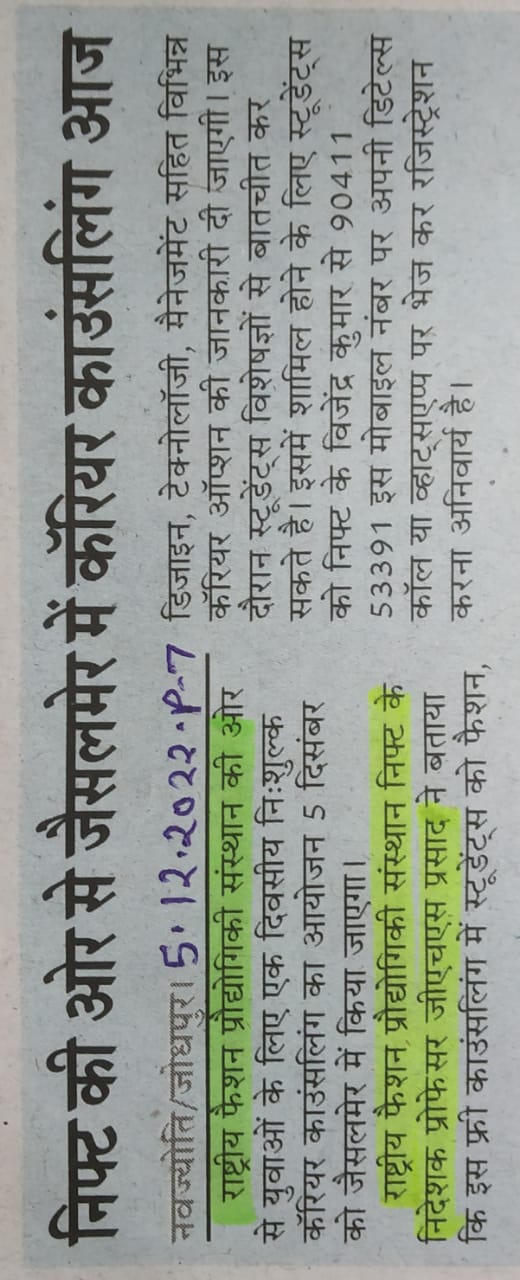 निफ्ट की ओर से जैसलमेर में कॅरियर काउंसलिंग आज
नवज्योति/जोधपुर। 5.12.2022.P-7
राष्ट्रीय फैशन प्रौद्योगिकी संस्थान की ओर
से युवाओं के लिए एक दिवसीय निःशुल्क
कॅरियर काउंसलिंग का आयोजन 5 दिसंबर
को जैसलमेर में किया जाएगा।
राष्ट्रीय फैशन प्रौद्योगिकी संस्थान निफ्ट के
निदेशक प्रोफेसर जीएचएस प्रसाद ने बताया
कि इस फ्री काउंसलिंग में स्टूडेंट्स को फैशन,
डिजाइन, टेक्नोलॉजी, मैनेजमेंट सहित विभिन्न
कॅरियर ऑप्शन की जानकारी दी जाएगी। इस
दौरान स्टूडेंट्स विशेषज्ञों से बातचीत कर
सकते है। इसमें शामिल होने के लिए स्टूडेंट्स
को निफ्ट के विजेंद्र कुमार से 90411
53391 इस मोबाइल नंबर पर अपनी डिटेल्स
कॉल या व्हाट्सएप्प पर भेज कर रजिस्ट्रेशन
करना अनिवार्य है।